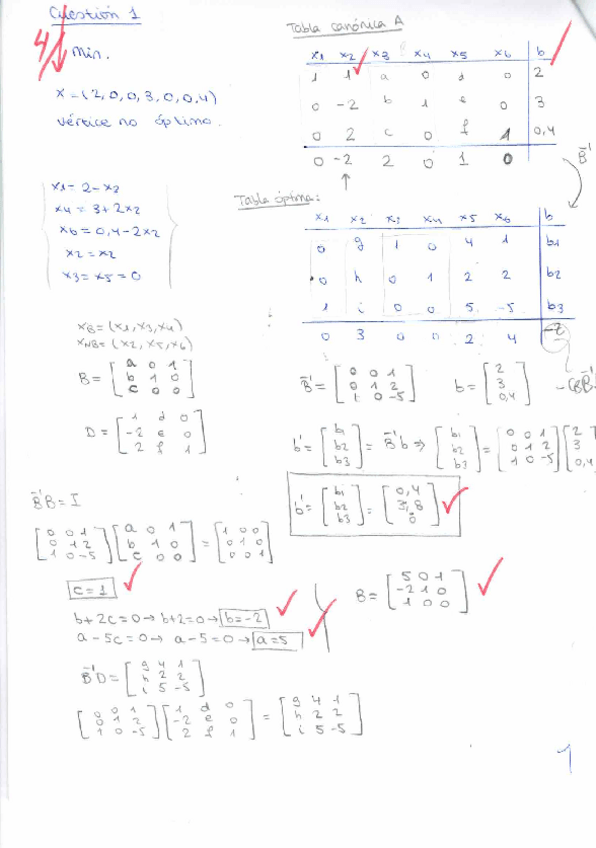 Cuestión 1
4
Min.
x = (2,0,0,3,0,0,4)
vértice no óptimo.
Tabla canónica A
x1 x2 x3 x4 x5 x6 b
1 1 a 0 d 0 2
0 -2 b 1 e 0 3
0 2 c 0 f 1 0,4
0 -2 2 0 1 0
B⁻¹
x1 = 2 - x2
x4 = 3 + 2x2
x6 = 0,4 - 2x2
x2 = x2
x3 = x5 = 0
Tabla óptima:
x1 x2 x3 x4 x5 x6 b
0 g 1 0 4 1 b1
0 h 0 1 2 2 b2
1 i 0 0 5 -5 b3
0 3 0 0 2 4 -2
xB = (x1, x3, x4)
xNB = (x2, x5, x6)
B = [a 0 1
b 1 0
c 0 0]
D = [1 d 0
-2 e 0
2 f 1]
B⁻¹ = [0 0 1
0 1 2
1 0 -5]
b = [2
3
0,4]
b' = [b1
b2
b3] = B⁻¹b ⇒ [b1
b2
b3] = [0 0 1
0 1 2
1 0 -5] [2
3
0,4
b' = [b1
b2
b3] = [0,4
3,8
0]
B⁻¹B = I
[0 0 1
0 1 2
1 0 -5] [a 0 1
b 1 0
c 0 0] = [1 0 0
0 1 0
0 0 1]
c = 1
b + 2c = 0 → b + 2 = 0 → b = -2
a - 5c = 0 → a - 5 = 0 → a = 5
B = [5 0 1
-2 1 0
1 0 0]
B⁻¹D = [g 4 1
h 2 2
i 5 -5]
[0 0 1
0 1 2
1 0 -5] [1 d 0
-2 e 0
2 f 1] = [g 4 1
h 2 2
i 5 -5]
1